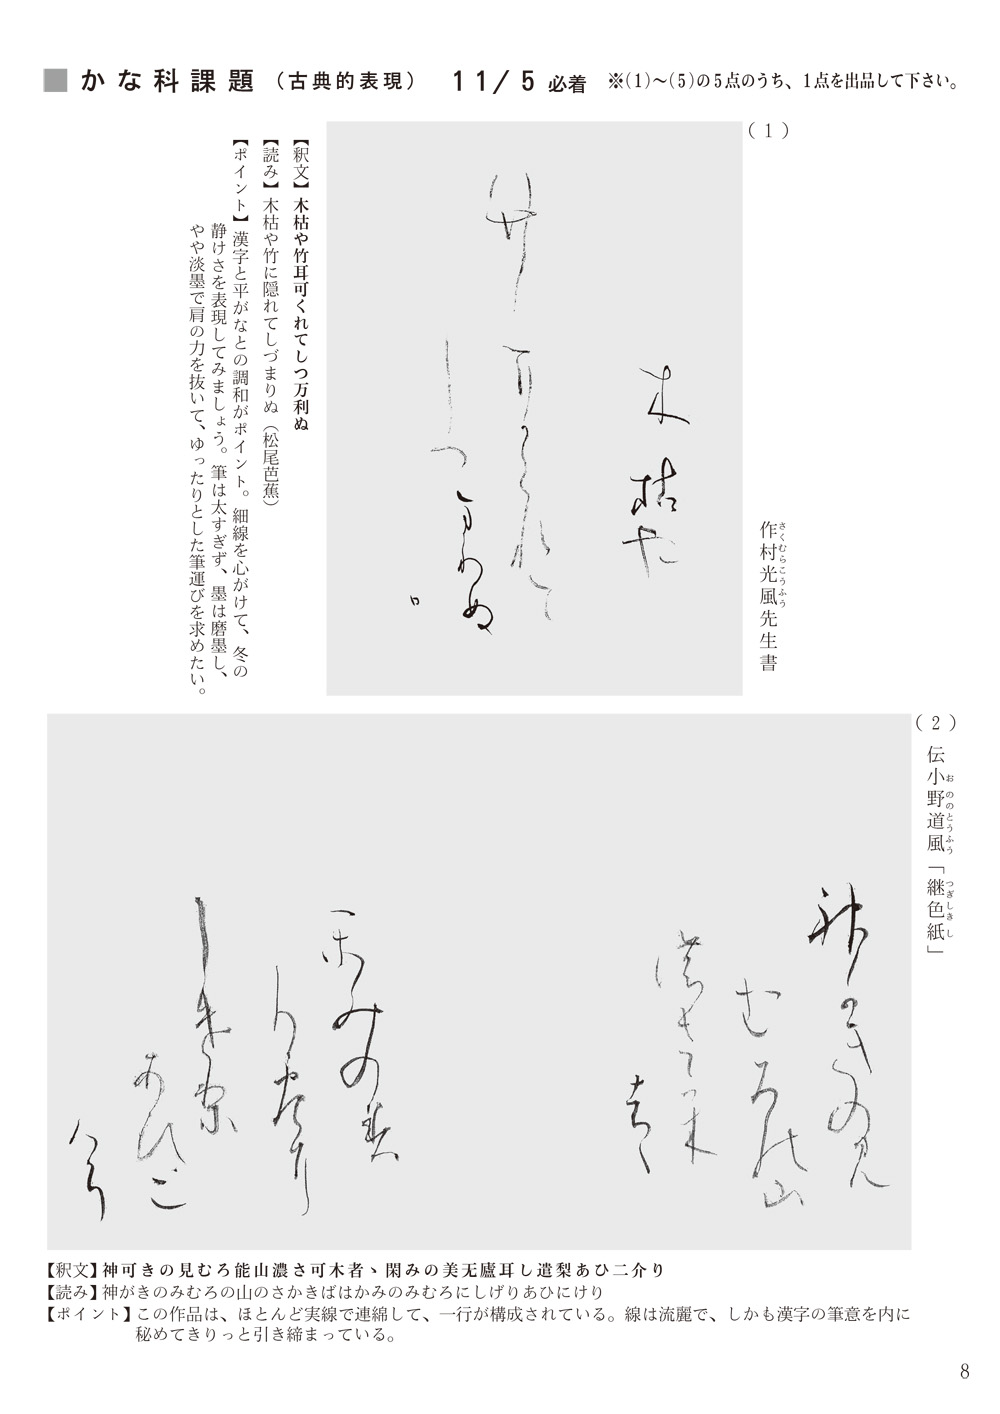 ■かな科課題（古典的表現） 11/5 必着 ※(1)～(5)の5点のうち、1点を出品して下さい。
(1)
作村光風先生書
さくむらこうふう
木枯や
竹耳可くれて
しつ万利ぬ
【釈文】木枯や竹耳可くれてしつ万利ぬ
【読み】木枯や竹に隠れてしづまりぬ（松尾芭蕉）
【ポイント】漢字と平がなとの調和がポイント。細線を心がけて、冬の
静けさを表現してみましょう。筆は太すぎず、墨は磨墨し、
やや淡墨で肩の力を抜いて、ゆったりとした筆運びを求めたい。
(2)
伝小野道風「継色紙」
おののとうふう つぎしきし
神可きの見
むろ能山
濃さ可木
者ゝ
閑みの美
无廬耳
し遣梨
あひ二
介り
【釈文】神可きの見むろ能山濃さ可木者ゝ閑みの美无廬耳し遣梨あひ二介り
【読み】神がきのみむろの山のさかきばはかみのみむろにしげりあひにけり
【ポイント】この作品は、ほとんど実線で連綿して、一行が構成されている。線は流麗で、しかも漢字の筆意を内に
秘めてきりっと引き締まっている。
8